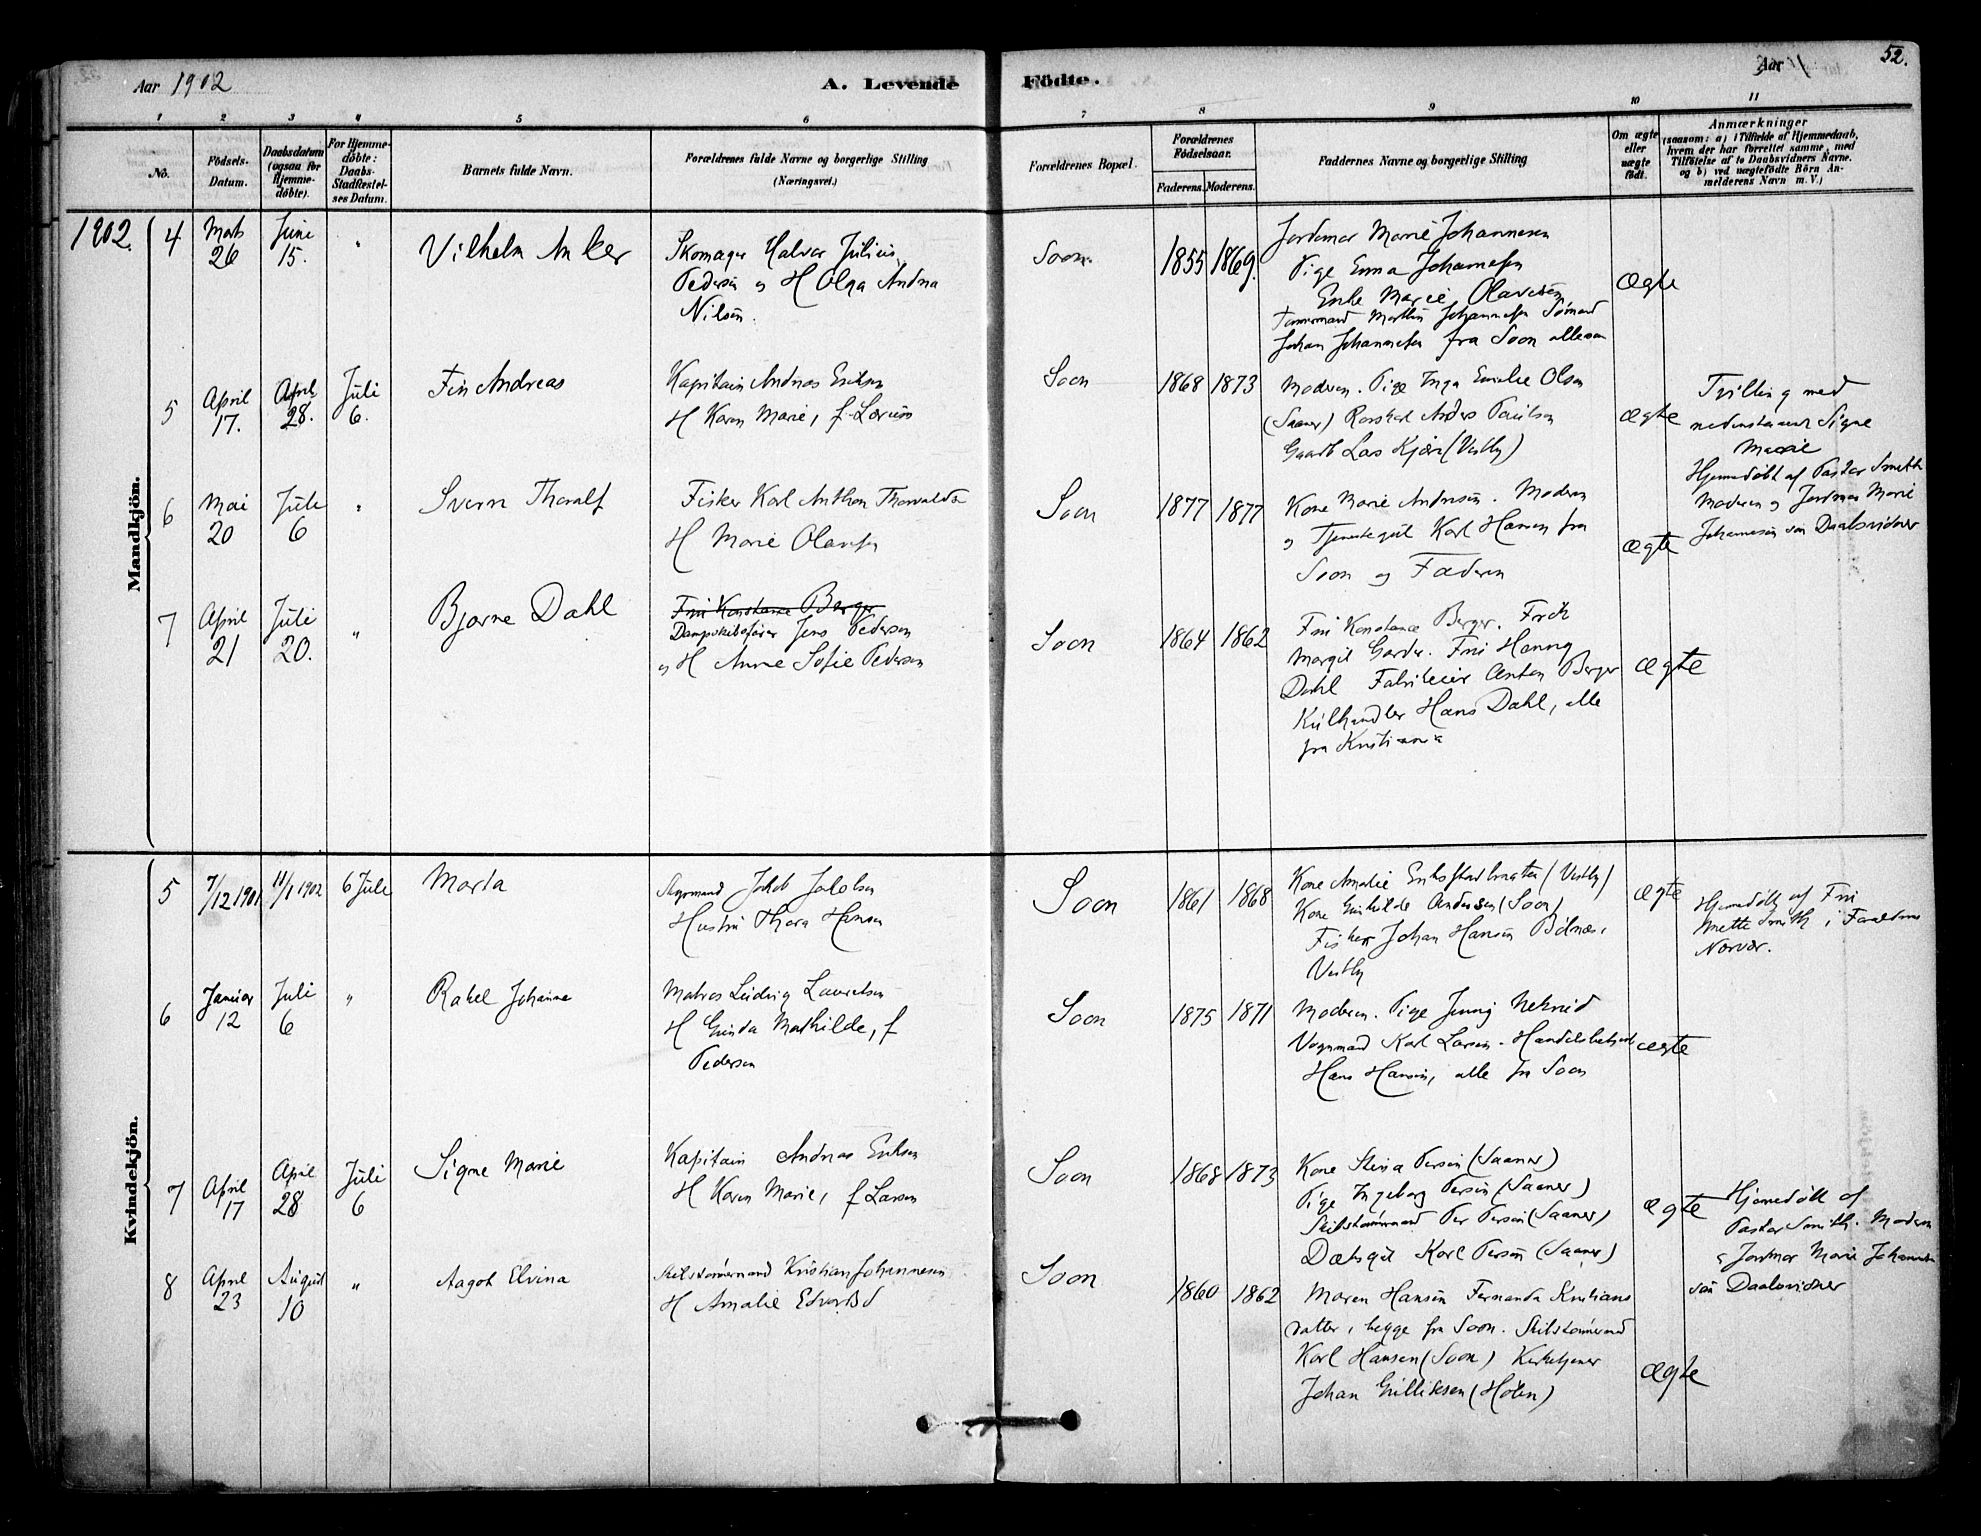 Aar 1902
A. Levende Födte.
Aar
52.
1 2 3 4 5 6 7 8 9 10 11
No.
Födsels-
Datum.
Daabsdatum
(ogsaa for
Hjemme-
døbte).
For Hjemme-
døbte:
Daabs-
Stadfæstel-
ses Datum.
Barnets fulde Navn.
Forældrenes fulde Navne og borgerlige Stilling
(Næringsvei.)
Forældrenes Bopæl.
Forældrenes
Fødselsaar.
Faderens. Moderens.
Faddernes Navne og borgerlige Stilling
Om ægte
eller
uægte
födt.
Anmærkninger
(saasom: a) i Tilfælde af Hjemmedaab,
hvem der har forrettet samme, med
Tilføielse af to Daabsvidners Navne.
og b) ved uægtefødte Börn An-
melderens Navn m. V.)
Mandkjön.
1902.
4
Marts
26
Juni
15.
"
Vilhelm Anker
Skomager Halvar Julius
Pedersen og H Olga Andrea
Nilsen.
Soon.
1855
1869.
Jordmor Marie Johannesen
Pige Emma Johannesen
Enke Marie Olavesen
Tømmermand Martin Johannesen Sømand
Johan Johannesen fra Soon allesam
ægte
5
April
17.
April
28.
Juli
6.
Fin Andreas
Kapitain Andreas Eriksen
H Karen Marie, f. Larsen
Soon
1868
1873
Moderen. Pige Inga Emilie Olsen
(Saaner) Anders Paulsen
Lars Kjær (Vestby)
ægte
Tvilling med
nedenstaaende Signe
Marie
Hjemmedøbt af Pastor Smith
Moderen og Jordmor Marie
Johannesen som Daabsvidner
6
Mai
20
Juli
6
"
Sverre Thoralf
Fisker Karl Anthon Thorvaldsen
H Marie Olavesen
Soon
1877
1877
Kone Marie Andresen. Moderen
og Tjenestegut Karl Hansen fra
Soon og Faderen
ægte
7
April
21
Juli
20.
"
Bjarne Dahl
Fru Konstance Berger
Dampskibsfører Jens Pedersen
og H Anne Sofie Pedersen
Soon
1864
1862
Fru Konstance Berger. Frøk
Margit Garder. Fru Hanny
Dahl Fabrikeier Anton Berger
Kulhandler Hans Dahl, alle
fra Kristiania
ægte
Kvindekjön.
5
7/12 1901
11/1 1902
6 Juli
Marta
Styrmand Jakob Jakobsen
Hustru Thora Hansen
Soon
1861
1868
Kone Amalie (Vestby)
Kone Gunhilde Andersen (Soon)
Fisker Johan Hansen
Vestby
ægte
Hjemmedøbt af Fru
Mette Smith i Forældrenes
Nærvær.
6
Januar
12
Juli
6
"
Rakel Johanne
Matros Ludvig Lauritsen
H Gunda Mathilde, f
Pedersen
Soon
1875
1871
Moderen. Pige Jenny
Vognmand Karl Larsen. Handelsbetjent
Hans Hansen, alle fra Soon
ægte
7
April
17
April
28
Juli
6
Signe Marie
Kapitain Andreas Eriksen
H Karen Marie, f Larsen
Soon
1868
1873
Kone Stina Persen (Saaner)
Pige Ingeborg Persen (Saaner)
Skibstømmermand Per Persen (Saaner)
Dæksgut Karl Persen (Saaner)
ægte
Hjemmedøbt af
Pastor Smith. Moderen
og Jordmor Marie Johannesen
som Daabsvidner
8
April
23
August
10
"
Aagot Elvina
Skibstømmermand Kristian Johannesen
H Amalie Edvards d
Soon
1860
1862
Maren Hansen Fernanda Kristians
datter, begge fra Soon. Skibstømmermand
Karl Hansen (Soon) Kirketjener
Johan Gulliksen (Hølen)
ægte